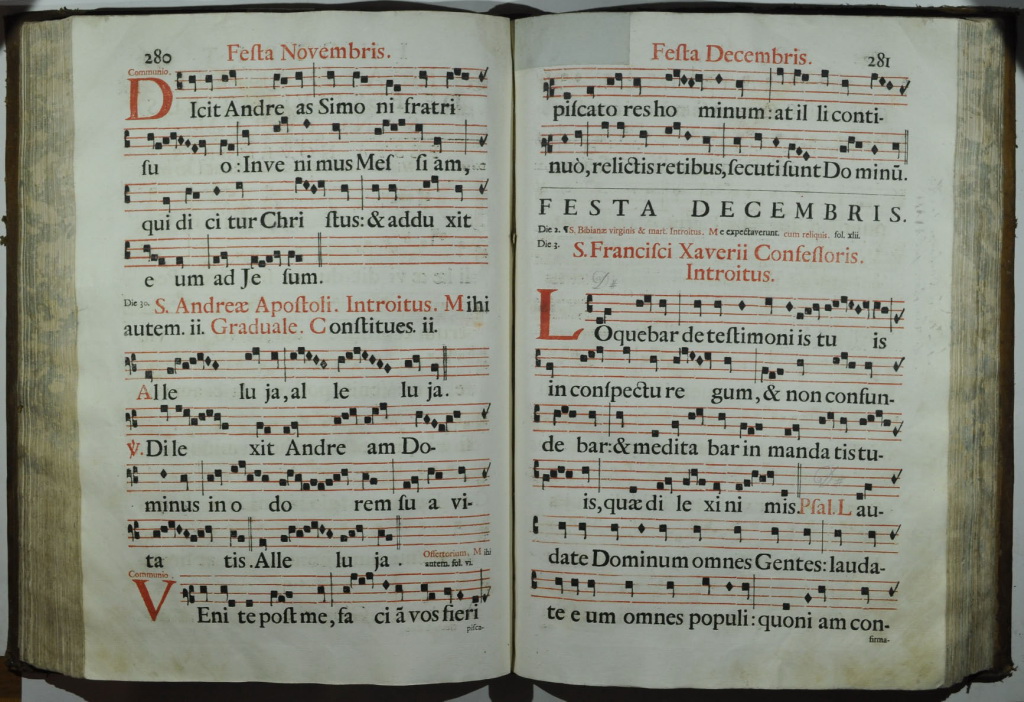 280
Feſta Novembris.
Communio.
DIcit Andre as Simo ni fratri
ſu o: Inve ni mus Meſ ſi am,
qui di ci tur Chri ſtus: & addu xit
e um ad Je ſum.
Die 30. S. Andreæ Apoſtoli. Introitus. Mihi
autem. ii. Graduale. Conſtitues. ii.
Alle lu ja, al le lu ja.
℣. Dile xit Andre am Do-
minus in o do rem ſu a vi-
ta tis. Alle lu ja.
Offertorium. Mihi
autem. fol. vi.
Communio.
VEni te poſt me, fa ci ã vos fieri
piſca-
Feſta Decembris.
281
piſcato res ho minum: at il li conti-
nuò, relictis retibus, ſecuti ſunt Do minũ.
FESTA DECEMBRIS.
Die 2. ¶S. Bibianæ virginis & mart. Introitus. Me expectaverunt. cum reliquis. fol. xlii.
Die 3.
S. Franciſci Xaverii Confeſſoris.
Introitus.
LOquebar de teſtimoni is tu is
in conſpectu re gum, & non confun-
de bar: & medita bar in manda tis tu-
is, quæ di le xi ni mis. Pſal. Lau-
date Dominum omnes Gentes: lauda-
te e um omnes populi: quoni am con-
firma-